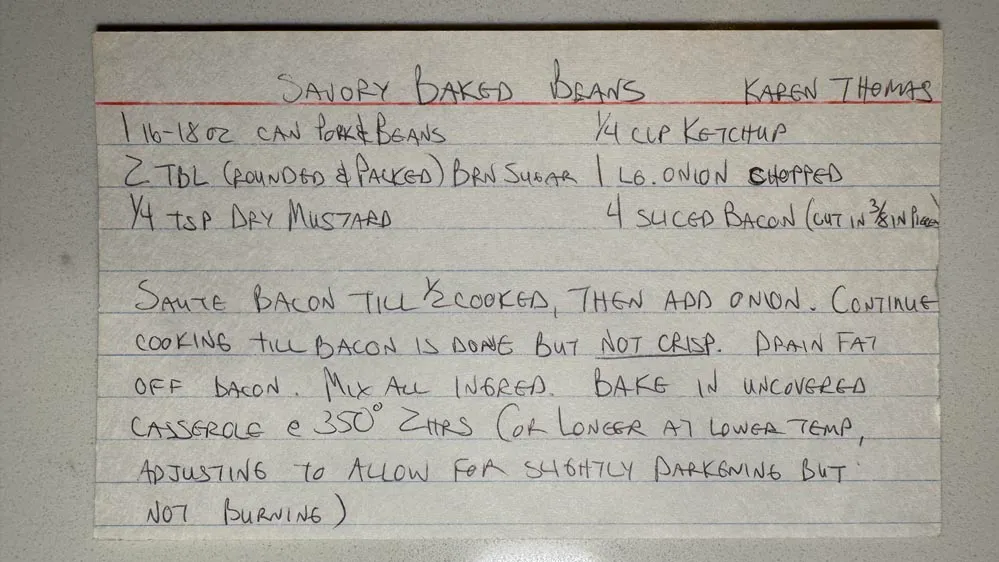 SAVORY BAKED BEANS KAREN THOMAS
1 16-18 OZ CAN PORK & BEANS 1/4 CUP KETCHUP
2 TBL (ROUNDED & PACKED) BRN SUGAR 1 LG. ONION CHOPPED
1/4 TSP DRY MUSTARD 4 SLICED BACON (CUT IN 3/8 IN PIECES)
SAUTE BACON TILL 1/2 COOKED, THEN ADD ONION. CONTINUE
COOKING TILL BACON IS DONE BUT NOT CRISP. DRAIN FAT
OFF BACON. MIX ALL INGRED. BAKE IN UNCOVERED
CASSEROLE @ 350° 2 HRS (OR LONGER AT LOWER TEMP,
ADJUSTING TO ALLOW FOR SLIGHTLY DARKENING BUT
NOT BURNING)